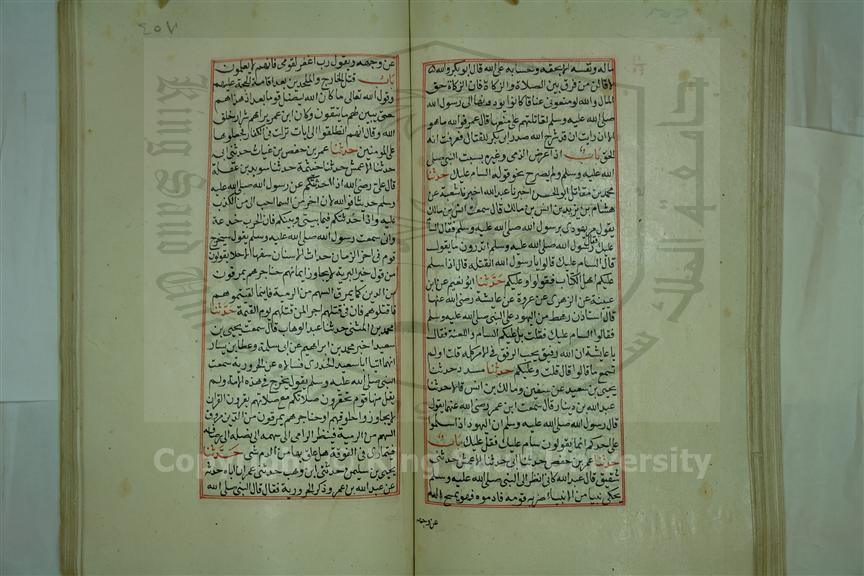 ماله ونفسه الا بحقه وحسابه على الله قال ابو بكر والله
لاقاتلن من فرق بين الصلاة والزكاة فان الزكاة حق
المال والله لو منعوني عناقا كانوا يودونها الى رسول الله
صلى الله عليه وسلم لقاتلتهم على منعها قال عمر فوالله ما هو
الا ان رايت ان قد شرح الله صدر ابي بكر للقتال فعرفت انه
الحق باب اذا عرض الذمى وغيره بسب النبى صلى
الله عليه وسلم ولم يصرح نحو قوله السام عليك حدثنا
محمد بن مقاتل ابو الحسن اخبرنا عبد الله اخبرنا شعبة عن
هشام بن زيد بن انس بن مالك قال سمعت انس بن مالك
يقول مر يهودى برسول الله صلى الله عليه وسلم فقال السام
عليك فقال رسول الله صلى الله عليه وسلم اتدرون ما يقول
قال السام عليك قالوا يا رسول الله الا نقتله قال لا اذا سلم
عليكم اهل الكتاب فقولوا وعليكم حدثنا ابو نعيم عن ابن
عيينة عن الزهرى عن عروة عن عايشة رضى الله عنها
قالت استاذن رهط من اليهود على النبى صلى الله عليه وسلم
فقالوا السام عليك فقلت بل عليكم السام واللعنة فقال
يا عايشة ان الله رفيق يحب الرفق فى الامر كله قلت اولم
تسمع ما قالوا قال قلت وعليكم حدثنا مسدد حدثنا
يحيى بن سعيد عن سفين ومالك بن انس قالا حدثنا
عبد الله بن دينار قال سمعت ابن عمر رضى الله عنهما يقول
قال رسول الله صلى الله عليه وسلم ان اليهود اذا سلموا
على احدكم انما يقولون سام عليك فقل عليك باب
حدثنا عمر بن حفص حدثنا ابى حدثنا الاعمش حدثنى
شقيق قال قال عبد الله كانى انظر الى النبى صلى الله عليه وسلم
يحكى نبيا من الانبياء ضربه قومه فادموه فهو يمسح الدم
عن وجهه
عن وجهه ويقول رب اغفر لقومى فانهم لا يعلمون
باب قتل الخوارج والملحدين بعد اقامة الحجة عليهم
وقول الله تعالى وما كان الله ليضل قوما بعد اذ هداهم
حتى يبين لهم ما يتقون وكان ابن عمر يراهم شرار خلق
الله وقال انهم انطلقوا الى ايات نزلت فى الكفار فجعلوها
على المومنين حدثنا عمر بن حفص بن غياث حدثنا ابى
حدثنا الاعمش حدثنا خيثمة حدثنا سويد بن غفلة
قال على رضى الله اذا حدثتكم عن رسول الله صلى الله عليه
وسلم حديثا فوالله لان اخر من السما احب الى من ان اكذب
عليه واذا حدثتكم فيما بينى وبينكم فان الحرب خدعة
وانى سمعت رسول الله صلى الله عليه وسلم يقول سيخرج
قوم فى اخر الزمان حداث الاسنان سفهاء الاحلام يقولون
من قول خير البرية لا يجاوز ايمانهم حناجرهم يمرقون
من الدين كما يمرق السهم من الرمية فاينما لقيتموهم
فاقتلوهم فان فى قتلهم اجرا لمن قتلهم يوم القيمة حدثنا
محمد بن المثنى حدثنا عبد الوهاب قال سمعت يحيى بن
سعيد اخبرنى محمد بن ابراهيم عن ابى سلمة وعطا بن يسار
انهما اتيا ابا سعيد الخدرى فسالاه عن الحرورية سمعت
النبى صلى الله عليه وسلم يقول يخرج فى هذه الامة ولم
يقل منها قوم تحقرون صلاتكم مع صلاتهم يقرون القران
لا يجاوز حلوقهم او حناجرهم يمرقون من الدين مروق
السهم من الرمية فينظر الرامى الى سهمه الى نصله الى رصافه
فيتمارى فى الفوقة هل علق بها من الدم شى حدثنا
يحيى بن سليمن حدثنى ابن وهب حدثنى عمر ان اباه حدثه
عن عبد الله بن عمر وذكر الحرورية فقال قال النبى صلى الله
Copyright © King Saud University
King Saud University
جامعة الملك سعود